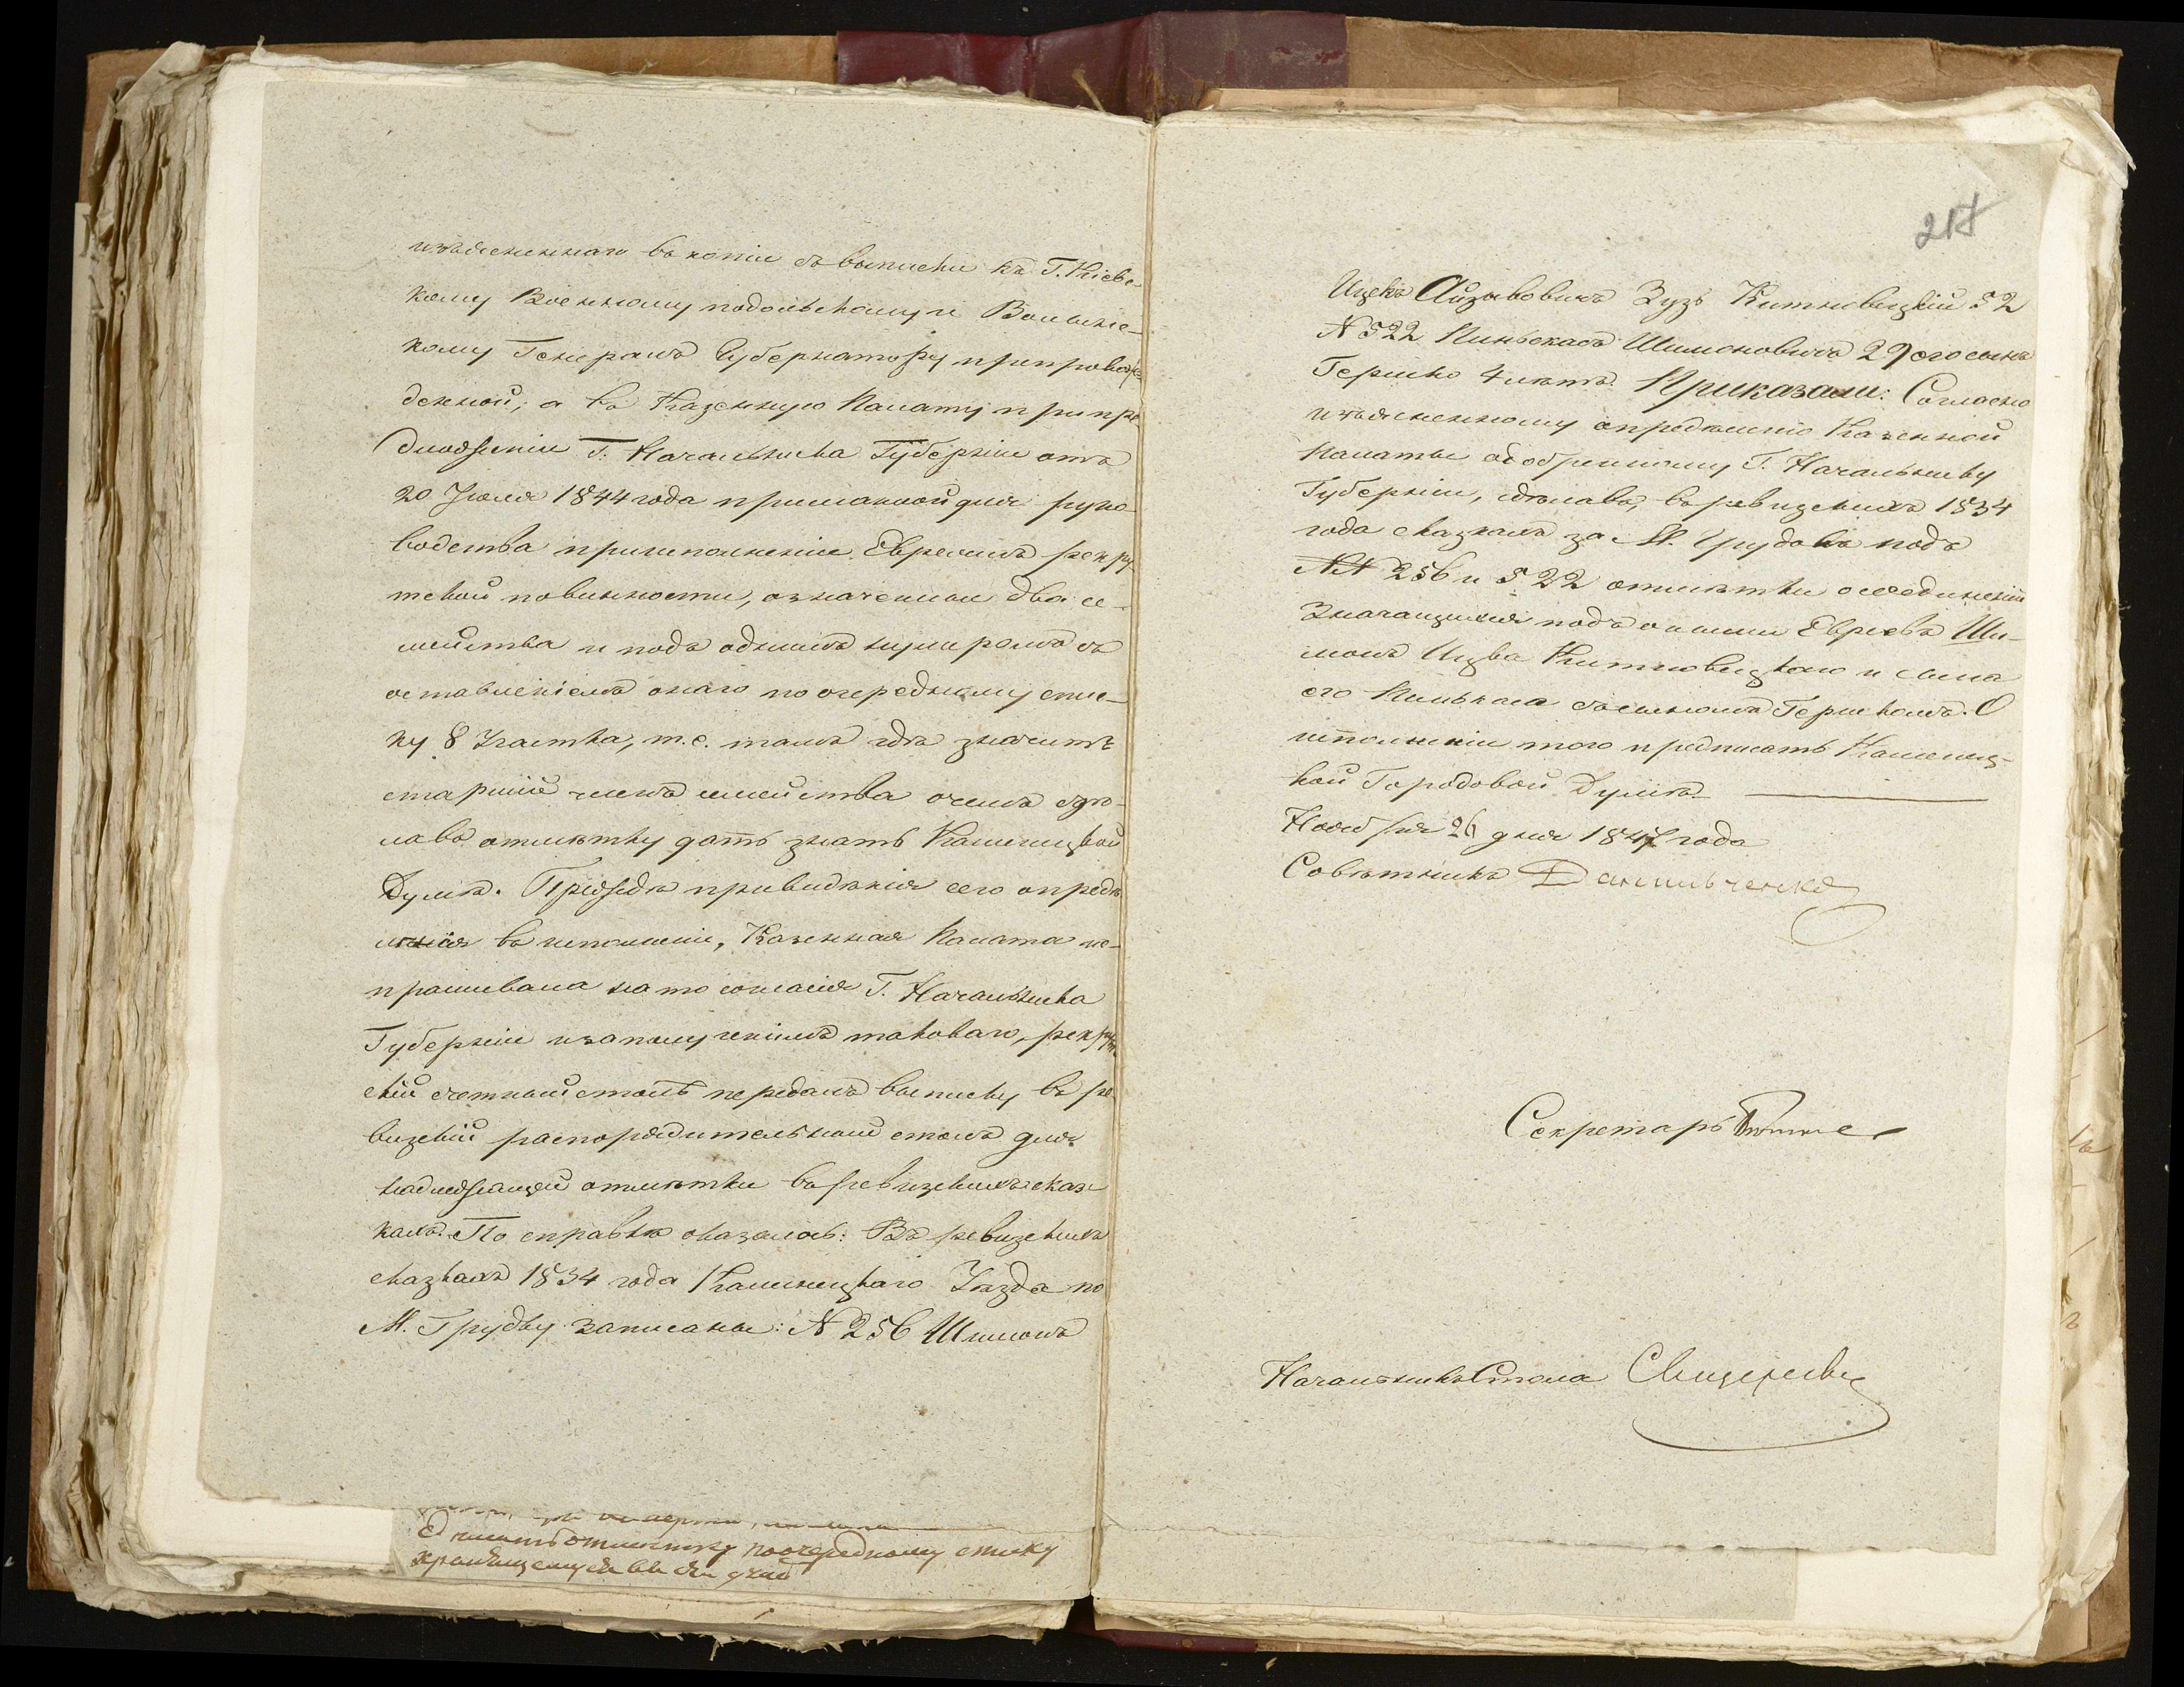 изъясненнаго въ копіи съ выписки къ Г. Кіевс-
кому Военному подольскому и Волынс-
кому Генералъ Губернатору препровож-
денной, а въ Казенную Палату при пре
дложеніи Г. Начальника Губерніи отъ
20 Іюля 1844 года присланной для руко-
водства при исполненіи Евреями рекру
тской повинности, означенныи два се-
мейства и подъ однимъ нумеромъ съ
оставленіемъ онаго по очередному спис-
ку 8 Участка, т.е. тамъ гдѣ значитъ
старшій членъ семейства о чемъ сдѣ-
лавъ отмѣтку дать знать Каменецкой
Думѣ. Прежде приведѣнія сего опредѣ
ленія въ исполненіе, Казенная Палата ис-
прашивала на то согласія Г. Начальника
Губерніи и за полученіемъ таковаго, рекрут
скій счетный столъ передалъ выписку въ ре
визскій распорядительный столъ для
надлежащей отмѣтки въ ревизскихъ сказ
кахъ. По справкѣ оказалось: Въ ревизскихъ
сказкахъ 1834 года Каменецкаго Уѣзда по
М. Грудку записаны: № 256 Шимонъ
отмѣтку по очередному списку
хранящемуся
217
Ицекъ Айзиковичъ Зузъ Китновецкій 52
№ 522 Пинькасъ Шимоновичъ 29 его сынъ
Гершко 4 лѣтъ. Приказали: Согласно
изъясненному опредѣленію Казенной
Палаты одобренному Г. Начальнику
Губерніи, сдѣлавъ, въ ревизскихъ 1834
года сказкахъ за М. Грудокъ подъ
№№ 256 и 522 отмѣтки о соединеніи
Значащихся подъ оными Евреевъ Ши-
мона Ицка Китновецкаго и сына
его Пинькаса съ сыномъ Гершкомъ. О
исполненіи того предписать Каменец-
кой Городовой Думѣ.
Ноября 26 дня 1847 года
Совѣтникъ Данильченко
Секретарь
Начальникъ Стола